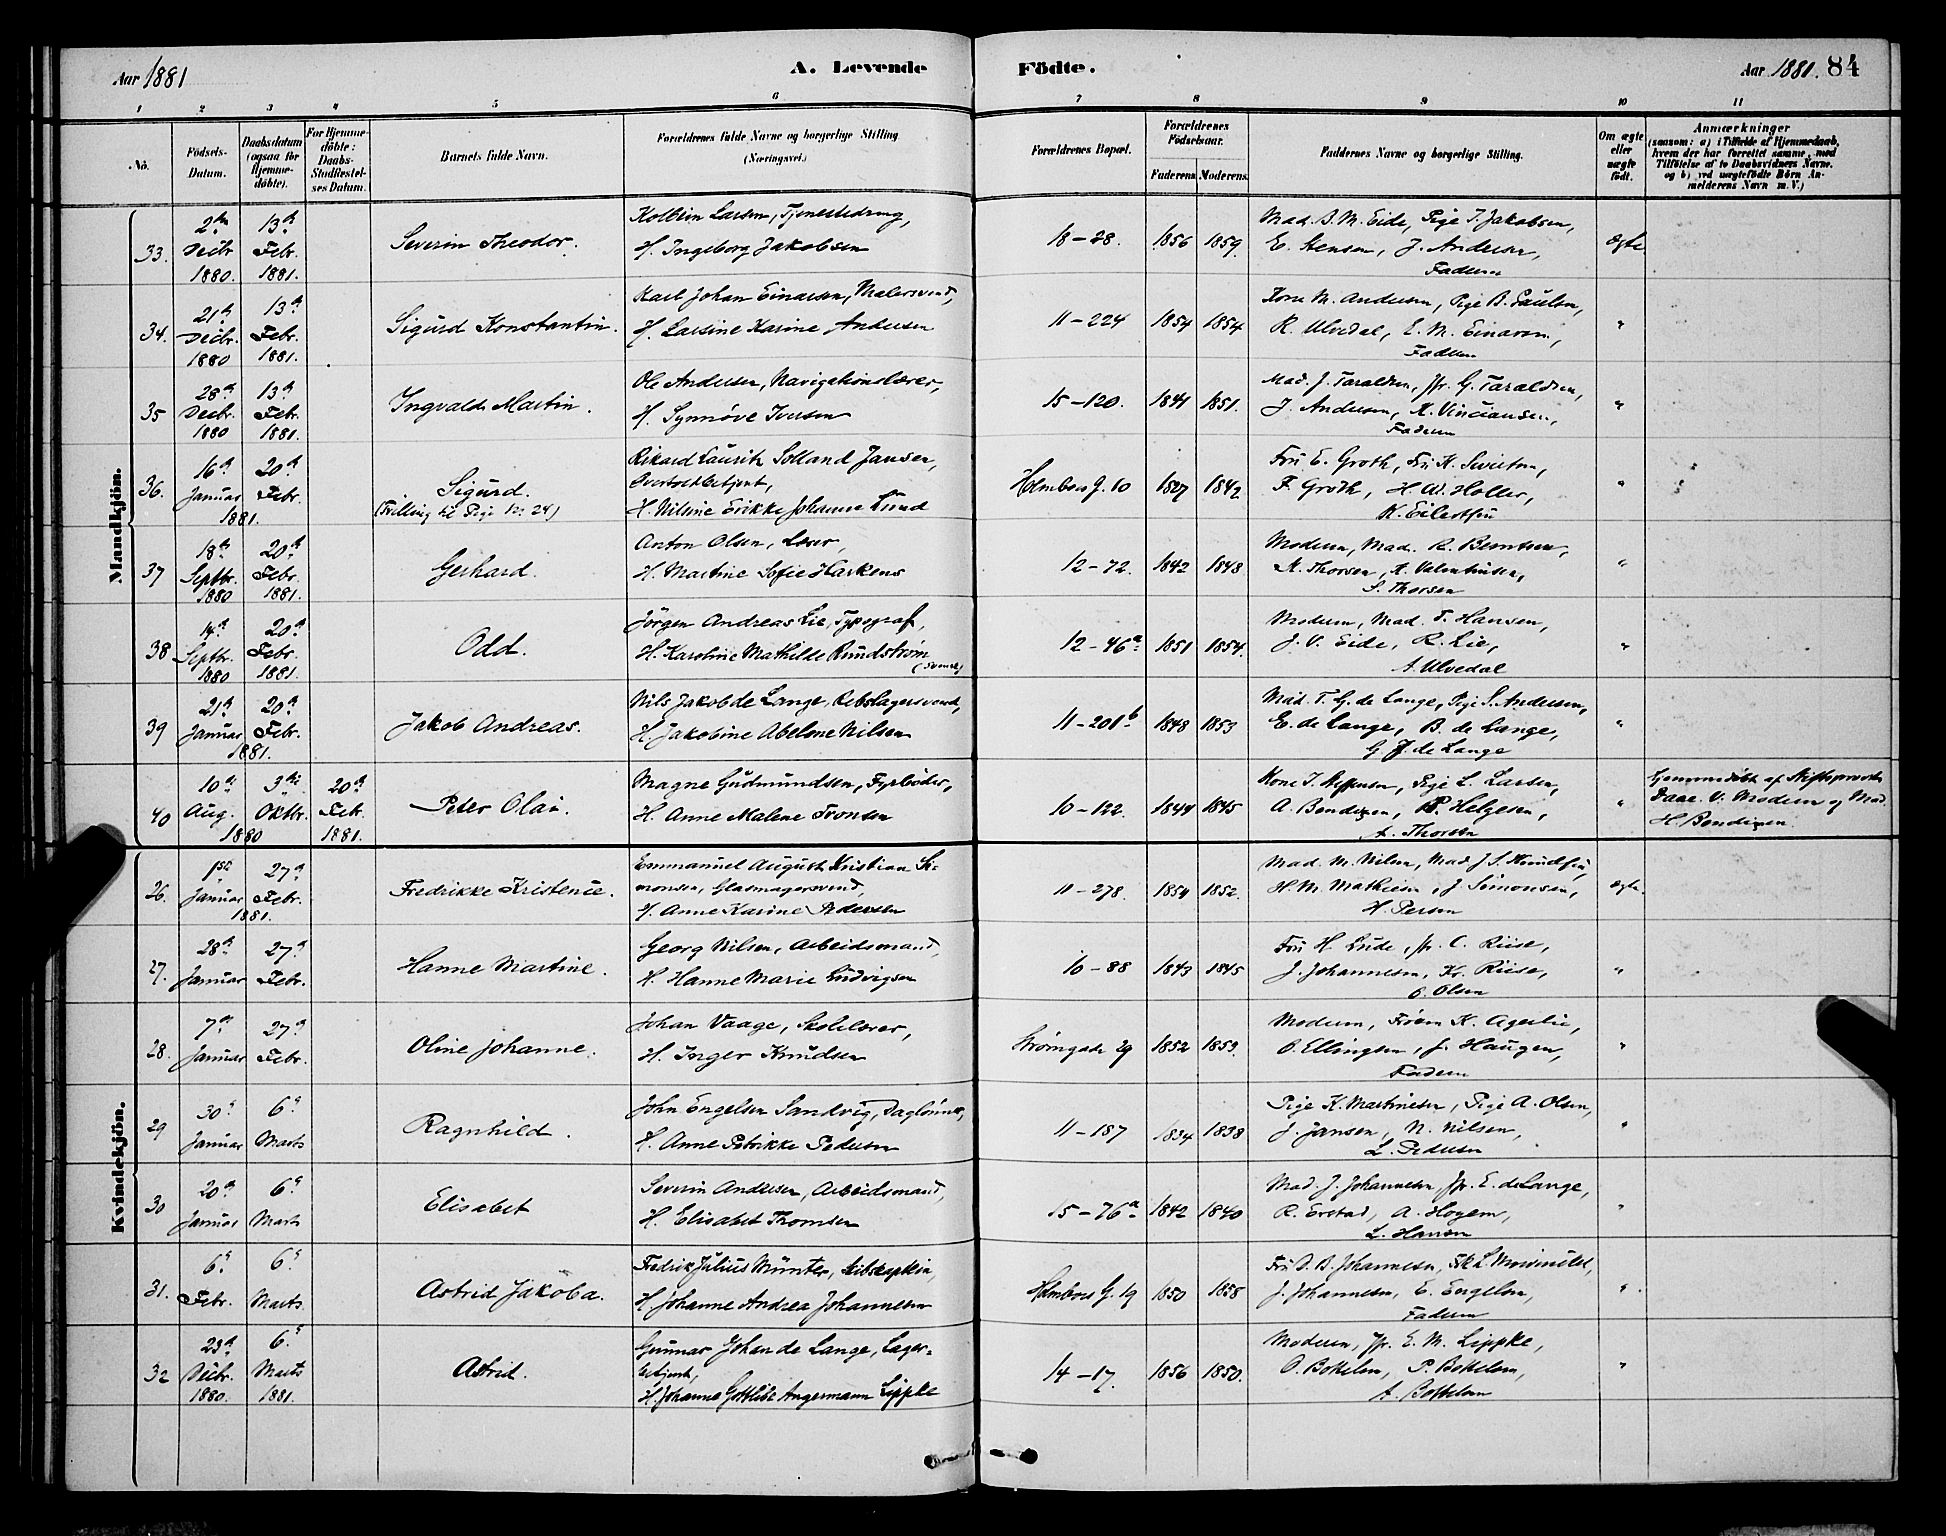 Aar 1881 A. Levende Födte. Aar 1881. 84
1 2 3 4 5 6 7 8 9 10 11
No. Födsels-Datum. Daabsdatum (ogsaa for Hjemme-döbte). For Hjemme-döbte: Daabs-Stadfæstel-ses Datum. Barnets fulde Navn. Forældrenes fulde Navne og borgerlige Stilling (Næringsvei.) Forældrenes Bopæl. Forældrenes Födselsaar. Faderens Moderens. Faddernes Navne og borgerlige Stilling. Om ægte eller uægte födt. Anmærkninger (saasom: a) i Tilfælde af Hjemmedaab, hvem der har forrettet samme, med Tilföielse af to Daabsvidners Navne. og b) ved uægtefödte Börn An-melderens Navn m. V.)
Mandkjön.
33. 2den Decbr. 1880. 13de Febr. 1881. Severin Theodor. Kolbein Larsen, Tjenestedreng, H. Ingeborg Jakobsen 18-28. 1856 1859. Mad. B. M. Eide, Pige I. Jakobsen, E. Hensen, J. Andersen, Faderen Ægte.
34. 21de Decbr. 1880 13de Febr. 1881. Sigurd Konstantin. Karl Johan Einarsen, Malersvend, H. Larsine Karine Andersen 11-224 1854 1854 Kone M. Andersen, Pige B. Paulsen, R. Ulvedal, E. M. Einarsen, Faderen "
35 28de Decbr. 1880 13de Febr. 1881. Ingvald Martin. Ole Andersen, Navigationslærer, H. Synnöve Iversen 15-120. 1841 1851. Mad. J. Taraldsen, Jfr. G. Taraldsen, J. Andersen, K. Vinciansen, Faderen "
36. 16de Januar 20de Febr. 1881. Sigurd. (Tvilling til Pige No 24) Rikard Lauritz Solland Jansen, Overtoldbetjent, H. Nilsine Erikke Johanne Lund Holmboes G. 10 1827 1842. Fru E. Groth, F. Groth, H. W. Holler, K. Eilertsen "
37 18de Septbr. 1880 20de Febr. 1881. Gerhard. Anton Olsen, Lærer, H. Martine Sofie Harkens 12-72. 1842 1848 Moderen, Mad. R. Berntsen, N. Thorsen, A. Valentinsen, S. Thorsen "
38 14de Septbr. 1880 20de Febr. 1881. Odd. Jörgen Andreas Lie, Typograf, H. Karoline Mathilde Rundström (svensk) 12-46a 1851 1854. Moderen, Mad. T. Hansen, J. V. Eide, R. Lie, A. Ulvedal "
39 21de Januar 20de Febr. 1881. Jakob Andreas. Nils Jakob de Lange, Rebslagersvend, H. Jakobine Abelone Nilsen 11-201b 1848 1853 Mad. T. G. de Lange, Pige S. Andersen, E. de Lange, B. de Lange, G. J. de Lange "
40 10de Aug. 3die Oktbr. 1880 20de Febr. 1881. Peter Olai. Magne Gudmundsen, Fyrböder, H. Anne Malene Tronsen 10-122. 1844 1845 Kone I. Steffensen, Pige L. Larsen, A. Bendixen, P. Helgesen, A. Thorsen " Hjemmedöbt af Stiftsprovst Daae. V. Moderen og Mad. H. Bendixen.
Kvindekjön.
26. 1ste Januar 27de Febr. 1881. Fredrikke Kristence. Emmanuel August Kristian Si-monsen, Glasmagersvend, H. Anne Karine Pedersen 11-278. 1854 1852. Mad. M. Nilsen, Mad. J. S. Knudsen, H. M. Mathiesen, J. Simonsen, H. Persen Ægte.
27. 28de Januar 27de Febr. Hanne Martine. Georg Nilsen, Arbeidsmand, H. Hanne Marie Ludvigsen 10-88 1843 1845 Fru H. Lude, Jfr. C. Riise, J. Johannesen, Kr. Riise, O. Olsen "
28. 7de Januar 27de Febr. Oline Johanne. Johan Vaage, Skolelærer, H. Inger Knudsen Strömgade 29 1852 1853. Moderen, Fröken K. Agerlie, O. Ellingsen, J. Haugen, Faderen "
29 30te Januar 6te Marts Ragnhild. John Engelsen Sandvig, Daglönner, H. Anne Petrikke Pedersen 11-187 1834 1838 Pige K. Martinesen, Pige A. Olsen, J. Jansen, N. Nilsen, L. Pedersen "
30 20de Januar 6te Marts Elisabet Severin Andersen, Arbeidsmand, H. Elisabet Thomsen 15-76a 1842 1840 Mad. J. Johannesen, Jfr. E. de Lange, R. Erstad, A. Hoyem, L. Hansen "
31. 6te Febr. 6te Marts Astrid Jakoba. Fredrik Julius Münster, Skibskaptein, H. Johanne Andrea Johannesen Holmboes G. 19 1850 1858 Fru D. B. Johannesen, J. Johannesen, E. Engelsen, Faderen "
32 23de Decbr. 1880. 6te Marts 1881. Astrid. Gunnar Johan de Lange, Lager-betjent, H. Johanne Gottlibe Angermann Lippke 14-17. 1856 1850. Moderen, Jfr. E. M. Lippke, O. Bottelsen, P. Bottelsen, A. Bottelsen "